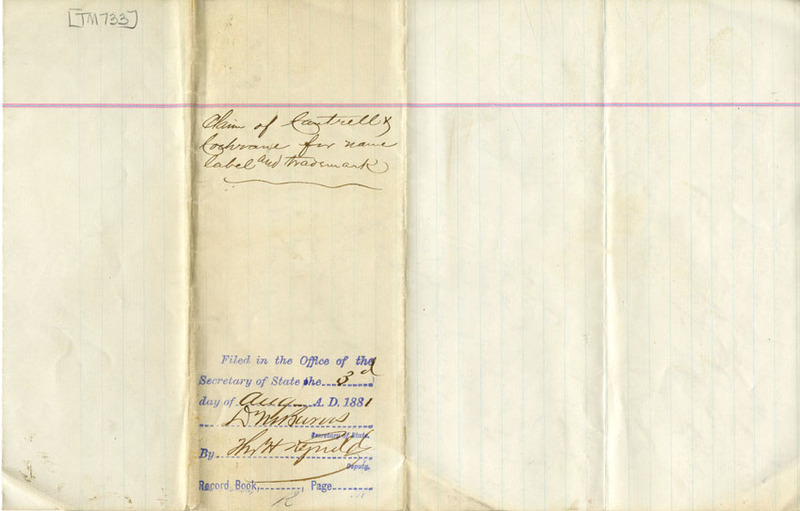 [TM733]
Claim of Cantrell &
Cochrane for name
label and trademark
Filed in the Office of the
Secretary of State the 3d
day of Aug A. D. 1881
D M Burns
Secretary of State.
By Thos H Reynolds
Deputy.
Record Book, , Page